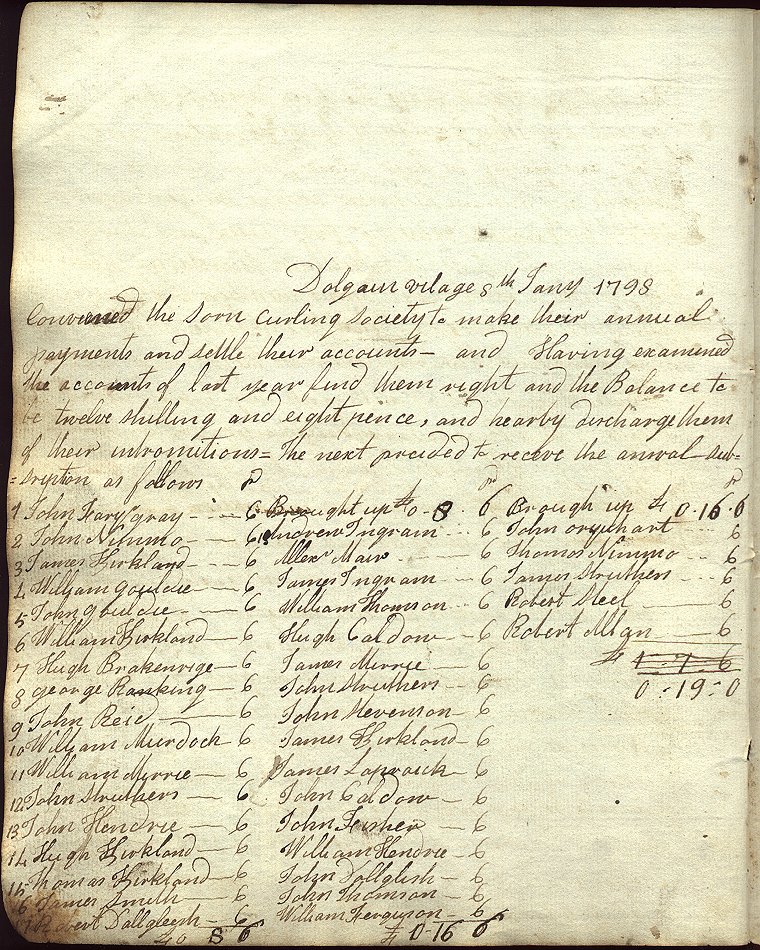 Dolgain vilage 8th Jany 1798
Convened the Sorn Curling Society to make their annual
payments and settle their accounts - and Having examined
the accounts of last year find them right and the Balance to
be twelve shilling and eight pence, and hearby discharge them
of their intromitions = The next preceded to receve the anwal sub=
=sription as follows d
1 John Farysgray - 6
2 John Nimmo - 6
3 James Kirkland - 6
4 William Gouldie - 6
5 John Gouldie - 6
6 William Kirkland - 6
7 Hugh Brakenrige - 6
8 George Ranking - 6
9 John Reid - 6
10 William Murdoch - 6
11 William Mirrie - 6
12 John Struthers - 6
13 John Hendrie - 6
14 Hugh Kirkland - 6
15 Thomas Kirkland - 6
16 James Smith - 6
17 Robert Dallgleesh - 6
8 6
d
Brought up £ 0 - 8 6
Andrew Ingram - 6
Allexr Mair - 6
James Ingram - 6
William Thomson - 6
Hugh Caldow - 6
James Mirrie - 6
John Struthers - 6
John Stevenson - 6
James Kirkland - 6
James Lapraick - 6
John Caldow - 6
John Fisher - 6
William Hendrie - 6
John Dallglish - 6
John Thomson - 6
William Ferguson - 6
£ 0 - 16 6
d
Brough up £ 0 - 16 - 6
John orquhart 6
Thomas Nimmo - 6
James Struthers - 6
Robert Steel - 6
Robert Allan - 6
£ 1 - 7 - 6
0 - 19 - 0